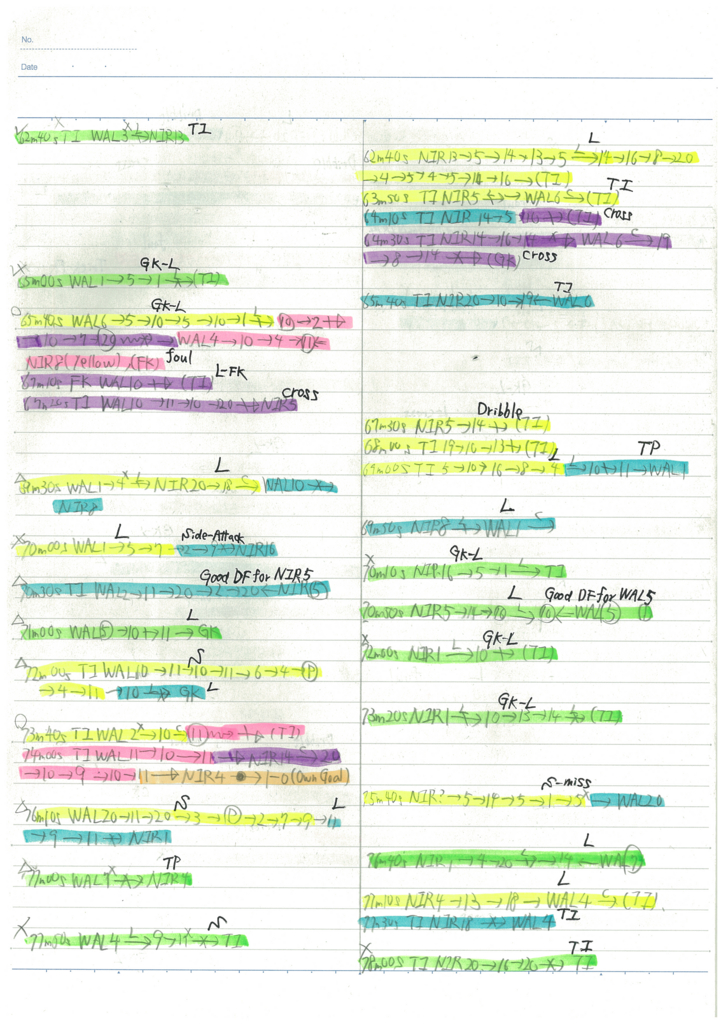 No.
Date
TI
62m40s TI WAL3 → NIR13
GK-L
65m00s WAL1→5→1→(TI)
GK-L
65m40s WAL6→5→10→5→10→1→⑩→2→
10→7→⑳ WAL4→10→4→⑪←
NIR8(Yellow) (FK) foul
L-FK
67m10s FK WAL10→(TI)
cross
67m20s TI WAL10→11→10→20→NIR5
L
69m30s WAL1→4→NIR20→18→WAL10→
NIR8
L Side-Attack
70m00s WAL1→5→7→2→7→NIR16
Good DF for NIR5
70m30s TI WAL2→11→20→2→20←NIR⑤
L
71m00s WAL⑤→10→11→GK
S
72m00s TI WAL10→11→10→11→6→4→Ⓟ
→4→11→10→GK L
73m40s TI WAL2→10→⑪→(TI)
74m00s TI WAL11→10→11→NIR14→20
→10→9→10→11→NIR4 ●→1-0(Own Goal
S L
76m10s WAL20→11→20→3→Ⓟ→2→7→9→11
→9→11→NIR1
TP
77m00s WAL9→NIR4
S
77m50s WAL4→9→11→TI
L
62m40s NIR13→5→14→13→5→14→16→8→20
→4→5→4→5→14→16→(TI)
TI
63m50s TI NIR5→WAL6→(TI)
64m10s TI NIR 14→5 →(TI) cross
64m30s TI NIR14→16→14→WAL6→19
→8→14→(GK) cross
TI
65m40s TI NIR20→10→19←WAL6
Dribble
67m30s NIR5→14→(TI)
68m00s TI 19→16→13→(TI)
L TP
69m00s TI 5→10→16→8→4→10→11→WAL1
L
69m50s NIR8→WAL1→
GK-L
70m10s NIR16→5→1→TI
L Good DF for WAL5
70m50s NIR5→14→⑩→⑩←WAL⑤
GK-L
72m00s NIR1→10→(TI)
GK-L
73m20s NIR1→10→13→14→(TI)
S-miss
75m40s NIR?→5→14→5→1→5→WAL20
L
76m40s NIR1→4→20→19←WAL⑦
L
77m10s NIR4→13→18→WAL4→(TI).
77m30s TI NIR18→WAL4 TI
TI
78m00s TI NIR20→16→20→TI